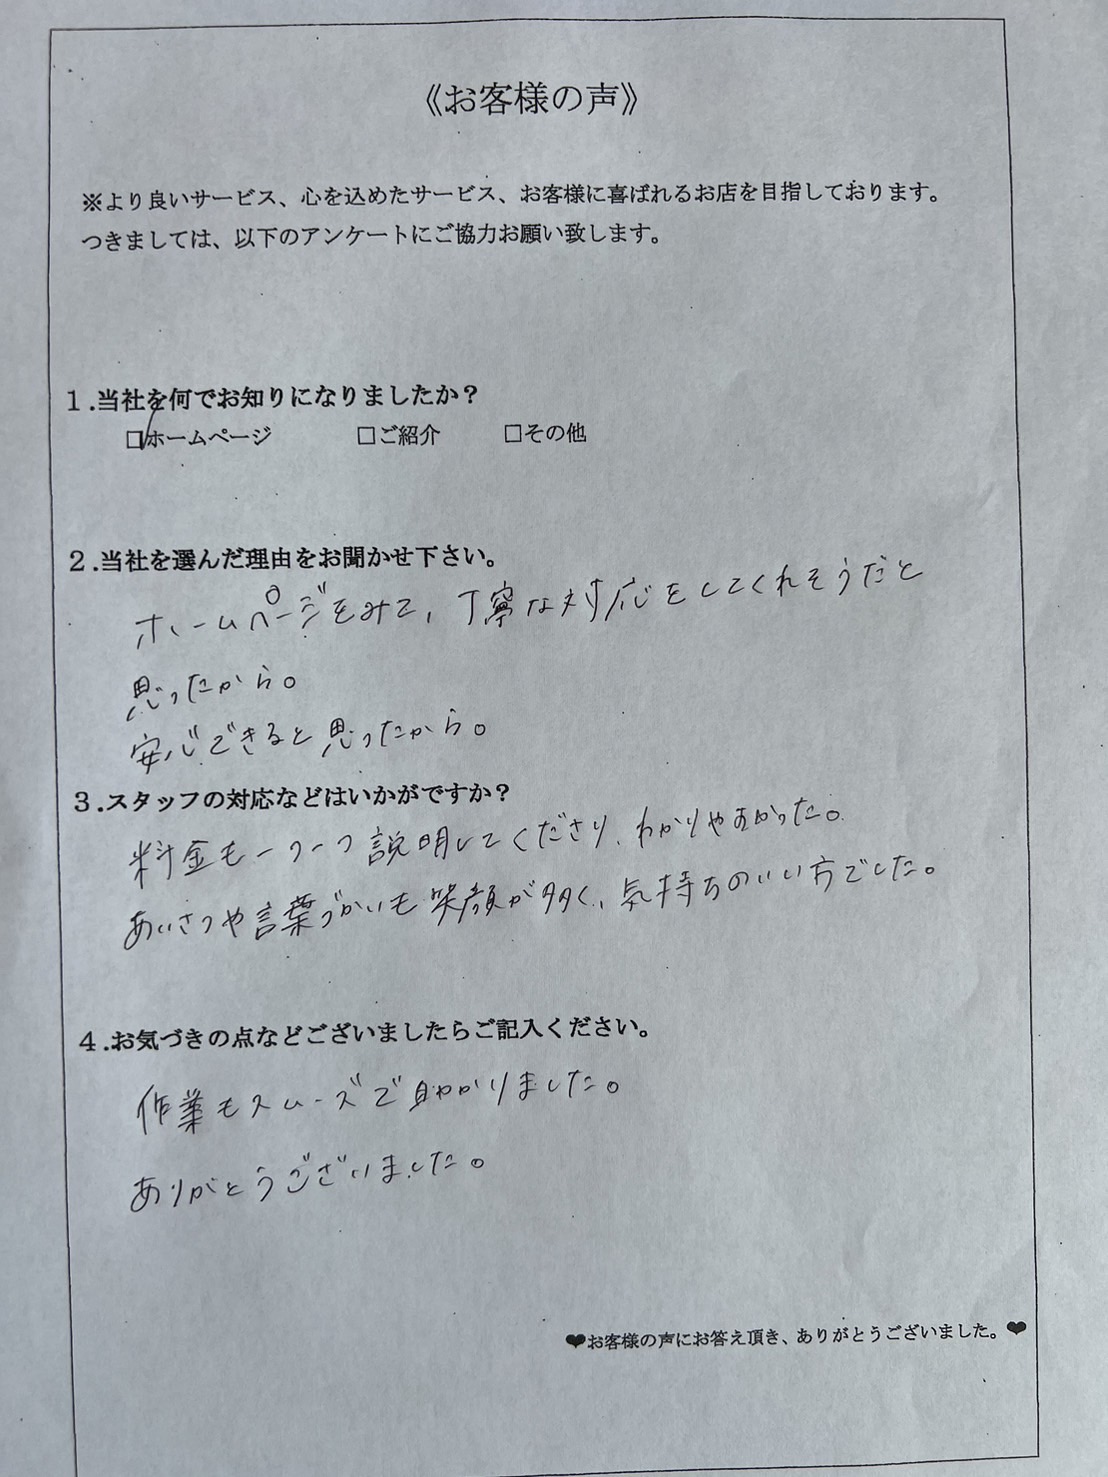 《お客様の声》
※より良いサービス、心を込めたサービス、お客様に喜ばれるお店を目指しております。
つきましては、以下のアンケートにご協力お願い致します。
１.当社を何でお知りになりましたか？
☑ホームページ □ご紹介 □その他
２.当社を選んだ理由をお聞かせ下さい。
ホームページをみて、丁寧な対応をしてくれそうだと
思ったから。
安心できると思ったから。
３.スタッフの対応などはいかがですか？
料金も一つ一つ説明してくださり、わかりやすかった。
あいさつや言葉づかいも笑顔が多く、気持ちのいい方でした。
４.お気づきの点などございましたらご記入ください。
作業もスムーズで助かりました。
ありがとうございました。
❤お客様の声にお答え頂き、ありがとうございました。❤